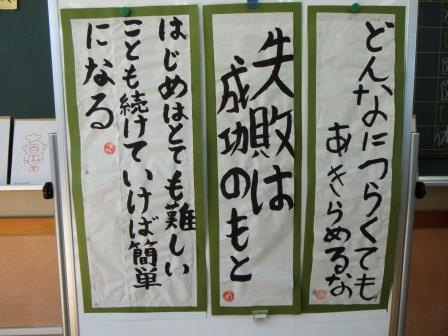 どんなにつらくても
あきらめるな
失敗は
成功のもと
はじめはとても難しい
ことも続けていけば簡単
になる